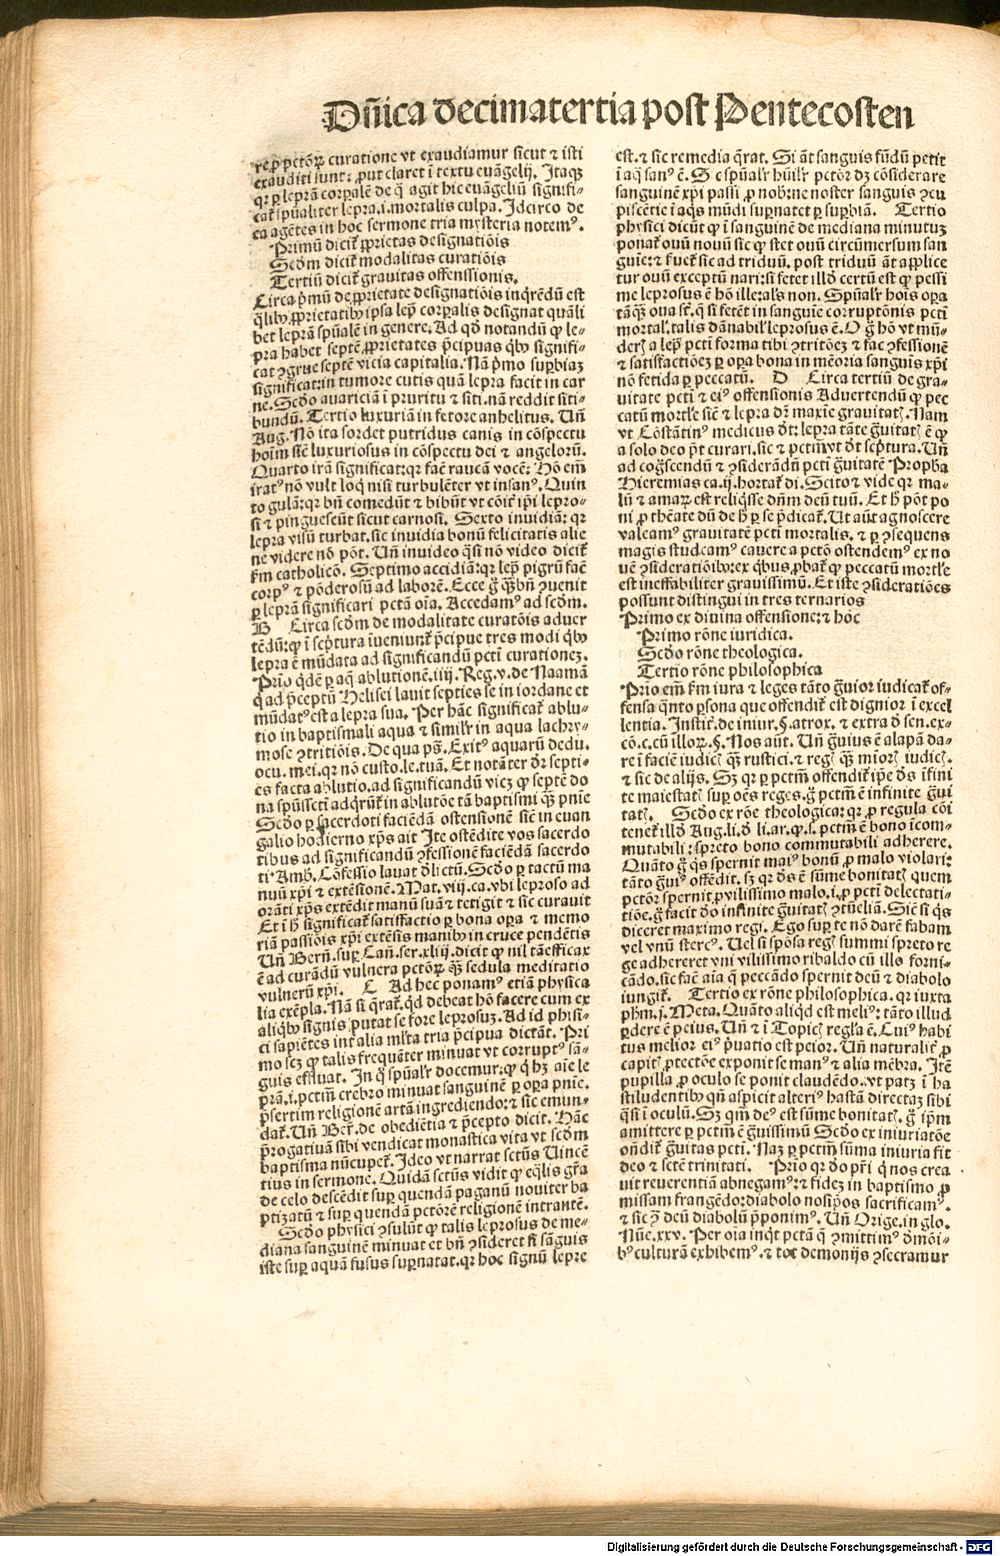 Dñica decimatertia post Pentecosten
re ꝓ pctōꝝ curatione vt exaudiamur sicut ⁊ isti
exauditi sunt: ꝓut claret ī textu euāgelij. Itaqꝫ
qꝛ ꝑ leprā corꝑalē de q̄ agit hic euāgeliū signifi-
cat̄ spūaliter lepra .i. mortalis culpa. Idcirco de
ea agētes in hoc sermone tria mysteria notemꝰ.
Primū dicit̄ ꝓprietas designatiōis
Scḋm dicit̄ modalitas curatiōis
Tertiū dicit̄ grauitas offensionis.
Circa p̄mū de ꝓprietate designatiōis inq̄rēdū est
q̄libꝫ ꝓprietatibꝫ ipsa lep̄ corꝑalis designat quāli
bet leprā spūalē in genere. Ad qḋ notandū ꝙ le-
pra habet septē ꝓprietates p̄cipuas q̄bꝫ signifi-
cat ꝯgrue septē vicia capitalia. Nā p̄mo suꝑbiaꝫ
significat: in tumore cutis quā lepra facit in car
ne. Scḋo auariciā ī pruritu ⁊ siti. nā reddit siti-
bundū. Tertio luxuriā in fetore anhelitus. Vn̄
Aug. Nō ita sordet putridus canis in cōspectu
hoīm sic̄ luxuriosus in cōspectu dei ⁊ angelorū.
Quarto irā significat: qꝛ faē raucā vocē: Hō em̄
iratꝰ nō vult loq̄ nisi turbulēter vt insanꝰ. Quin
to gulā: qꝛ bn̄ comedūt ⁊ bibūt vt cōit̄ ip̄i lepro-
si ⁊ pinguescūt sicut carnosi. Sexto inuidiā: qꝛ
lepra visū turbat. sic inuidia bonū felicitatis alie
ne videre nō pōt. Vn̄ inuideo q̄si nō video dicit̄
ẜm catholicō. Septimo accidiā: qꝛ lep̄ pigrū faē
corpꝰ ⁊ pōderosū ad laborē. Ecce g̊ ꝙ̄ bn̄ ꝯuenit
ꝑ leprā significari pctā oīa. Accedamꝰ ad scḋm.
B Circa scḋm de modalitate curatōis aduer
tēdū: ꝙ ī sc̄ptura īueniunt̄ p̄cipue tres modi q̄bꝫ
lepra ē mūdata ad significandū pcti curationeꝫ.
Prīo q̄dē ꝑ aq̄ ablutionē. iiij. Reg. v. de Naamā
q̄ ad p̄ceptū Helisei lauit septies se in iordane et
mūdatꝰ est a lepra sua. Per hāc significat̄ ablu-
tio in baptismali aqua ⁊ similr̄ in aqua lachry-
mose ꝯtritiōis. De qua ps̄. Exitꝰ aquarū dedu.
ocu. mei. qꝛ nō custo. le. tuā. Et notāter ḋr septi-
es facta ablutio. ad significandū viceꝫ ꝙ septē do
na spūssctī adq̄rūt̄ in ablutōe tā baptismi ꝙ̄ pnīe
Scḋo ꝑ sacerdoti faciēdā ostensionē sic̄ in euan
galio hodierno xp̄s ait Ite ostēdite vos sacerdo
tibus ad significandū ꝯfessionē faciēdā sacerdo
ti. Amb. Cōfessio lauat ḋlictū. Scḋo ꝑ tactū ma
nuū xp̄i ⁊ extēsionē. Mat. viij. ca. vbi leproso ad
orāti xp̄s extēdit manū suā ⁊ tetigit ⁊ sic curauit
Et ī h̄ significat̄ satisfactio ꝑ bona oꝑa ⁊ memo
riā passiōis xp̄i extēsis manibꝫ in cruce pendētis
Vn̄ Bern̄. suꝑ Cān̄. ser. xliij. dicit ꝙ nil tā efficax
ē ad curādū vulnera pctōꝝ ꝙ̄ sedula meditatio
vulnerū xp̄i. C Ad hec ponamꝰ etiā physica
lia exēpla. Nā si q̄rat̄. qḋ debeat hō facere cum ex
aliq̄bꝫ signis putat se fore leprosuꝫ. Ad id phisi-
ci sapiētes int̄ alia ml̄ta tria p̄cipua dictāt. Pri
mo seꝫ ꝙ talis frequēter minuat vt corruptꝰ sā-
guis effluat. In q̄ spūalr̄ docemur: ꝙ q̄ hꝫ aīe le
prā .i. pctm̄ crebro minuat sanguinē ꝑ oꝑa pnīe.
p̄sertim religionē artā ingrediendo: ⁊ sic emun-
dat̄. Vn̄ Ber̄. de obediētia ⁊ p̄cepto dicit. Hāc
p̄rogatiuā sibi vendicat monastica vita vt scḋm
baptisma nūcupet̄. Ideo vt narrat sctūs Vincē
tius in sermone. Quidā sctūs vidit ꝙ eq̄lis gr̄a
de celo descēdit suꝑ quendā paganū nouiter ba
ptizatū ⁊ suꝑ quendā pctōrē religionē intrantē.
Scḋo physici ꝯsulūt ꝙ talis leprosus de me-
diana sanguinē minuat et bn̄ ꝯsideret si sāguis
iste suꝑ aquā fusus suꝑnatat. qꝛ hoc signū lepre
est. ⁊ sic remedia q̄rat. Si āt sanguis fūdū petit
ī aq̄ sanꝰ ē. Sc spūalr̄ hūilr̄ pctōr dꝫ cōsiderare
sanguinē xp̄i passi ꝓ nob: ne noster sanguis ꝯcu
piscētie ī aq̄s mūdi suꝑnatet ꝑ suꝑbiā. Tertio
physici dicūt ꝙ ī sanguinē de mediana minutuꝫ
ponat̄ ouū nouū sic ꝙ stet ouū circūmersum san
guīe: ⁊ fuet̄ sic ad triduū. post triduū āt applice
tur ouū exceptū nari: si fetet illḋ certū est ꝙ pessi
me leprosus ē hō ille: al̄s non. Spūalr̄ hoīs oꝑa
tāꝙ̄ oua st̄. q̄ si fetēt in sanguīe corruptōnis pcti
mortal̄. talis dānabil̄r leprosus ē. O g̊ hō vt mū-
derꝫ a lep̄ pcti forma tibi ꝯtritōeꝫ ⁊ fac ꝯfessionē
⁊ satisfactiōeꝫ ꝑ oꝑa bona in mēoria sanguīs xp̄i
nō fetida ꝑ peccatū. D Circa tertiū de gra-
uitate pcti ⁊ eiꝰ offensionis Aduertendū ꝙ pec
catū mortl̄e sic̄ ⁊ lepra dꝛ maxīe grauitatꝫ. Nam
vt Cōstātinꝰ medicus ḋt: lepra tāte g̃uitatꝫ ē ꝙ
a solo deo pt̄ curari. sic ⁊ pctm̄ vt ḋt sc̄ptura. Vn̄
ad cog̊scendū ⁊ ꝯsiderādū pcti g̃uitatē Prop̄ha
Hieremias ca. ij. hortat̄ dī. Scito ⁊ vide qꝛ ma-
lū ⁊ amaꝝ est reliq̄sse dn̄m deū tuū. Et h̄ pōt po
ni ꝓ thēate dū de h̄ ꝑ se p̄dicat̄. Vt aūt agnoscere
valeamꝰ grauitatē pcti mortalis. ⁊ ꝑ ꝯsequens
magis studeamꝰ cauere a pctō ostendemꝰ ex no
uē ꝯsideratiōibꝫ: ex q̄bus ꝓbat̄ ꝙ peccatū mortl̄e
est ineffabiliter grauissimū. Et iste ꝯsideratiōes
possunt distingui in tres ternarios
Primo ex diuina offensione: ⁊ hoc
Primo rōne iuridica.
Scḋo rōne theologica.
Tertio rōne philosophica
Prīo em̄ ẜm iura ⁊ leges tāto g̃uior iudicat̄ of-
fensa q̄nto ꝑsona que offendit̄ est dignior ī excel
lentia. Instit̄. de iniur. §. atrox. ⁊ extra ḋ sen. ex-
cō. c. cū illoꝝ. §. Nos aūt. Vn̄ g̃uius ē alapā da-
re ī faciē iudicꝫ ꝙ̄ rustici. ⁊ regꝫ ꝙ̄ mīorꝫ iudicꝫ.
⁊ sic de alijs. Sꝫ qꝛ ꝑ pctm̄ offendit̄ ip̄e ḋs īfini
te maiestatꝫ suꝑ oēs reges. g̊ pctm̄ ē infinite g̃ui
tatꝫ. Scḋo ex rōe theologica: qꝛ ꝓ regula cōi
tenet̄ illḋ Aug. li. ḋ li. ar. ꝙ. s. pctm̄ ē bono īcom-
mutabili: spreto bono commutabili adherere.
Quāto g̊ q̄s spernit maiꝰ bonū ꝓ malo violari:
tāto g̃uiꝰ offēdit. sꝫ qꝛ ḋs ē sūme bonitatꝫ quem
pctōr spernit ꝓ vilissimo malo .i. ꝓ pcti delectati-
tiōe. g̊ facit ḋo infinite g̃uitatꝫ ꝯtūeliā. Sic̄ si q̄s
diceret maximo regi. Ego suꝑ te nō darē fabam
vel vnū stercꝰ. Uel si spōsa regꝫ summi spreto re
ge adhereret vni vilissimo ribaldo cū illo forni-
cādo. sic faē aīa q̄ peccādo spernit deū ⁊ diabolo
iungit̄. Tertio ex rōne philosophica. qꝛ iuxta
phm̄. j. Meta. Quāto aliqḋ est meliꝰ: tāto illud
ꝑdere ē peius. Vn̄ ⁊ ī Topicꝫ regl̄a ē. Cuiꝰ habi
tus melior eiꝰ p̄uatio est peior. Vn̄ naturalit̄ ꝓ
capitꝫ ꝓtectōe exponit se manꝰ ⁊ alia mēbra. Itē
pupilla ꝓ oculo se ponit claudēdo .. vt patꝫ ī ha
stiludentibꝫ qn̄ aspicit alteriꝰ hastā directaꝫ sibi
q̄si ī oculū. Sꝫ qm̄ deꝰ est sūme bonitatꝫ. g̊ ip̄m
amittere ꝑ pctm̄ ē g̃uissimū Scḋo ex iniuriatōe
on̄dit̄ g̃uitas pcti. Naꝫ ꝑ pctm̄ sūma iniuria fit
deo ⁊ sctē trinitati. Prīo qꝛ ḋo p̄ri q̄ nos crea
uit reuerentiā abnegamꝰ: ⁊ fideꝫ in baptismo ꝓ
missam frangēdo: diabolo nosip̄os sacrificamꝰ.
⁊ sic ꝯ̄ deū diabolū p̄ponimꝰ. Vn̄ Orige. in glo.
Nūe. xxv. Per oīa inq̄t pctā q̄ ꝯmittimꝰ ḋmōi-
bꝰ culturā exhibemꝰ. ⁊ tot demonijs ꝯsecramur
Digitalisierung gefördert durch die Deutsche Forschungsgemeinschaft - DFG